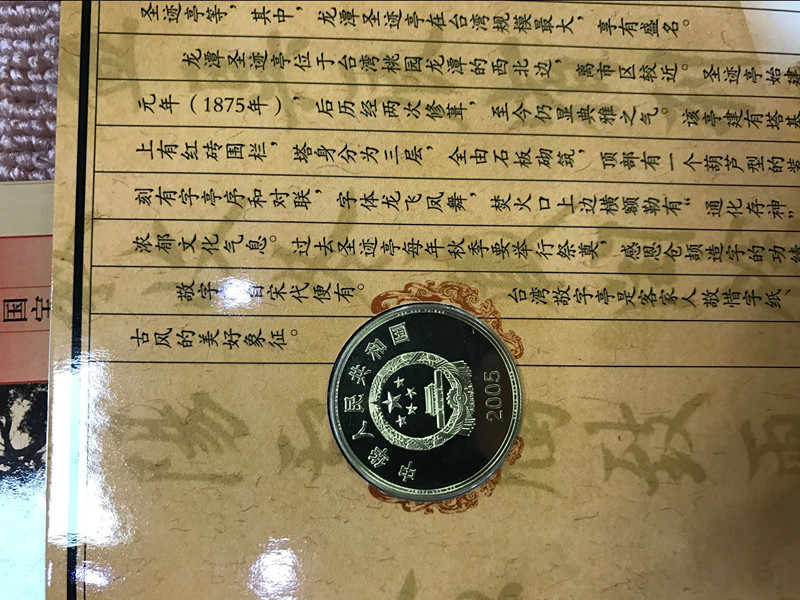 圣迹亭等，其中，龙潭圣迹亭在台湾规模最大，享有盛名。
龙潭圣迹亭位于台湾桃园龙潭的西北边，离市区较近。圣迹亭始建
元年（1875年），后历经两次修葺，至今仍显典雅之气。该亭建有塔基
上有红砖围栏，塔身分为三层，全由石板砌筑，顶部有一个葫芦型的装
刻有字亭序和对联，字体龙飞凤舞，焚火口上边横额勒有“通化存神”
浓郁文化气息。过去圣迹亭每年秋季要举行祭奠，感恩仓颉造字的功绩
敬字 自宋代便有。台湾敬字亭是客家人敬惜字纸、
古风的美好象征。
中华人民共和国
2005
国字